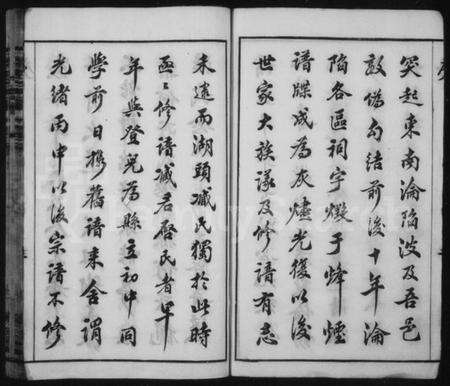 突起東南淪陷波及吾邑
敵偽勾結前後十年淪
陷各區祠宇燬于烽煙
譜牒成為灰燼光復以後
世家大族議及修譜有志
未逮而湖頭臧民獨於此時
亟亟修譜臧君啟民者早
年與登兒為縣立初中同
學前日携舊譜来舍謂
光緒丙申以後宗譜不修